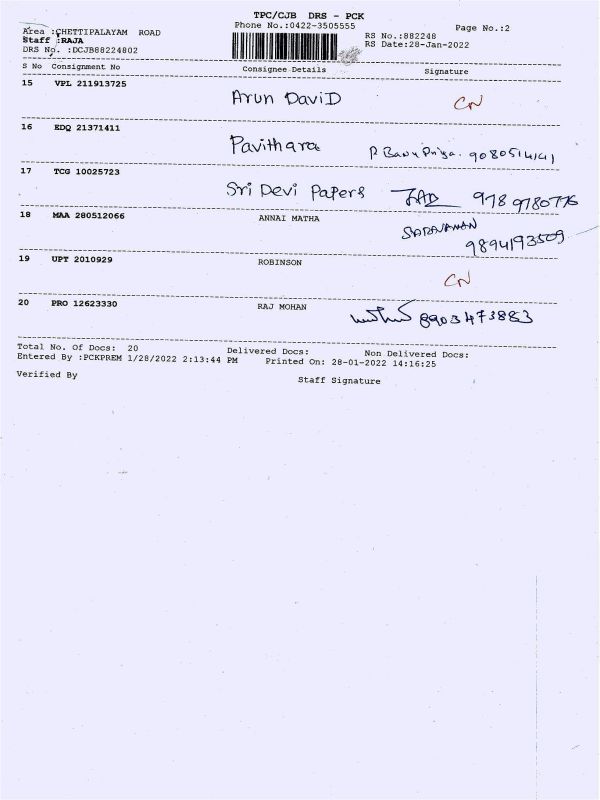 TPC/CJB DRS - PCK
Phone No.:0422-3505555 Page No.:2
Area :CHETTIPALAYAM ROAD RS No.:882248
Staff :RAJA RS Date:28-Jan-2022
DRS No. :DCJB88224802
S No Consignment No Consignee Details Signature
15 VPL 211913725 Arun DaviD CN
16 EDQ 21371411 Pavithara P Banu Priya. 9080514141
17 TCG 10025723 Sri Devi Papers 978 9780776
18 MAA 280512066 ANNAI MATHA SARAVANAN
9894193509
19 UPT 2010929 ROBINSON CN
20 PRO 12623330 RAJ MOHAN 8903473883
Total No. Of Docs: 20 Delivered Docs: Non Delivered Docs:
Entered By :PCKPREM 1/28/2022 2:13:44 PM Printed On: 28-01-2022 14:16:25
Verified By Staff Signature